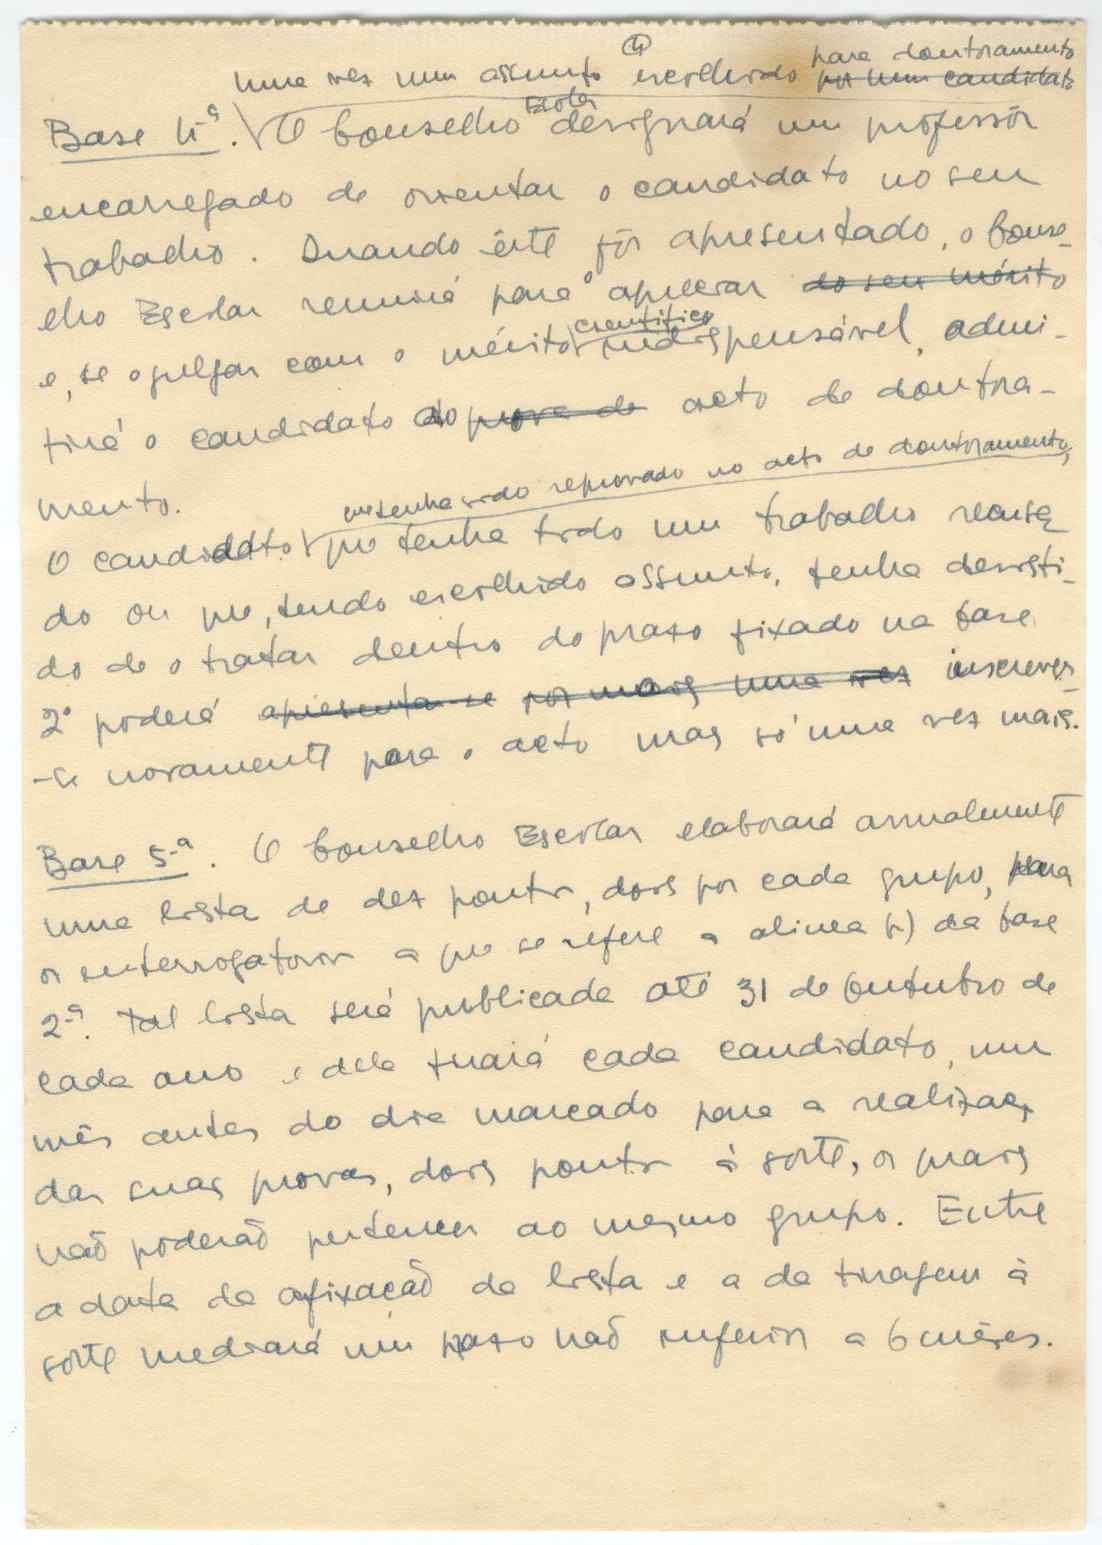 ④
para doutoramento
Uma vez um assunto escolhido por um candidato
Escolar
Base 4ª. O Conselho designará um professôr
encarregado de orientar o candidato no seu
trabalho. Quando êste fôr apresentado, o Conse-
lho Escolar reunirá para o apreciar do seu mérito
científico
e, se o julgar com o mérito indispensável, admi-
tirá o candidato ao prova de acto de doutora-
mento.
que tenha sido reprovado no acto de doutoramento,
O candidato que tenha tido um trabalho recusa
do ou que, tendo escolhido assunto, tenha desisti-
do de o tratar dentro do prazo fixado na base
2ª poderá apresenta-se por mais uma vez inscrever-
-se novamente para o acto mas só uma vez mais.
Base 5ª. O Conselho Escolar elaborará anualmente
uma lista de dez pontos, dois por cada grupo, para
os interrogatorios a que se refere a alinea b) da base
2ª. Tal lista será publicada até 31 de Outubro de
cada ano e dela tirará cada candidato, um
mês antes do dia marcado para a realização
das suas provas, dois pontos à sorte, os quais
não poderão pertencer ao mesmo grupo. Entre
a data da afixação da lista e a da tiragem à
sorte mediará um prazo não inferior a 6 mêses.